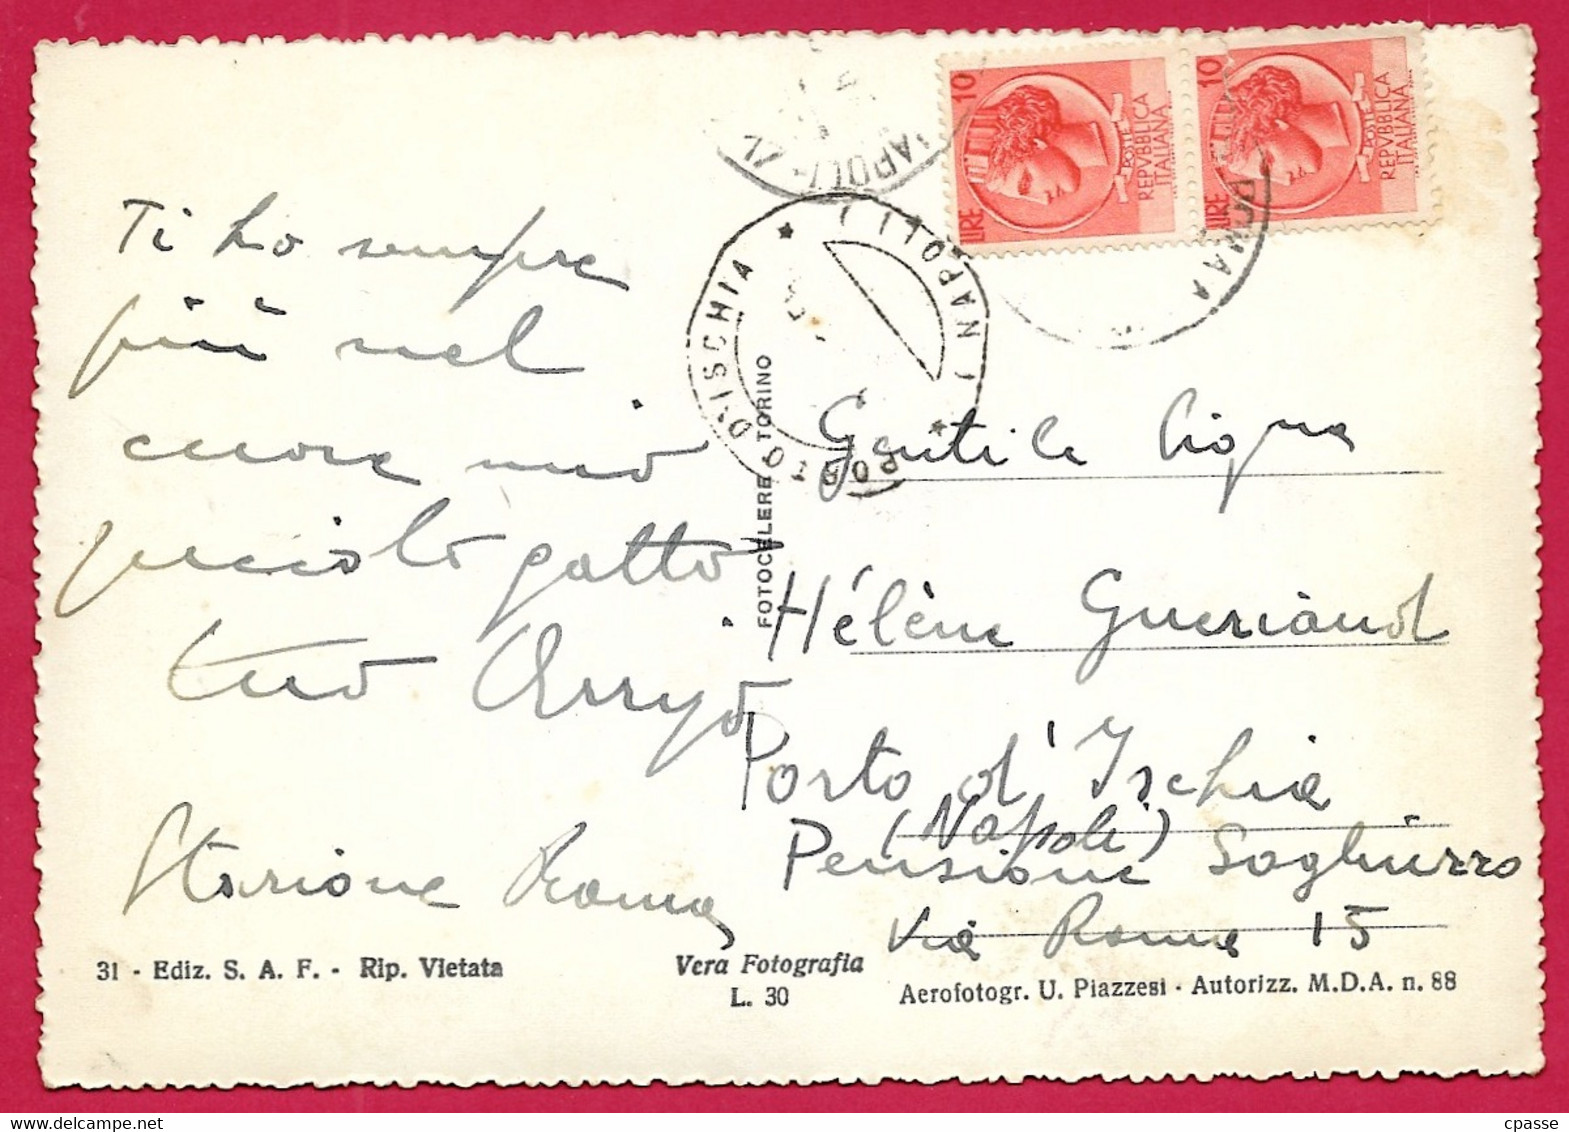 Ti ho sempre
più nel
cuore mio
piccolo gatto
tuo Arrys
Stazione Roma
31 - Ediz. S. A. F. - Rip. Vietata
Vera Fotografia
L. 30
FOTOCELERE TORINO
10
LIRE
POSTE
REPVBBLICA
ITALIANA
10
LIRE
POSTE
REPVBBLICA
ITALIANA
NAPOLI
PORTO D'ISCHIA
(NAPOLI)
Gentile
Hélène Gueriaud
Porto d'Ischia
(Napoli)
Pensione Soghiuzzo
Via Roma 15
Aerofotogr. U. Piazzesi - Autorizz. M.D.A. n. 88
cpasse